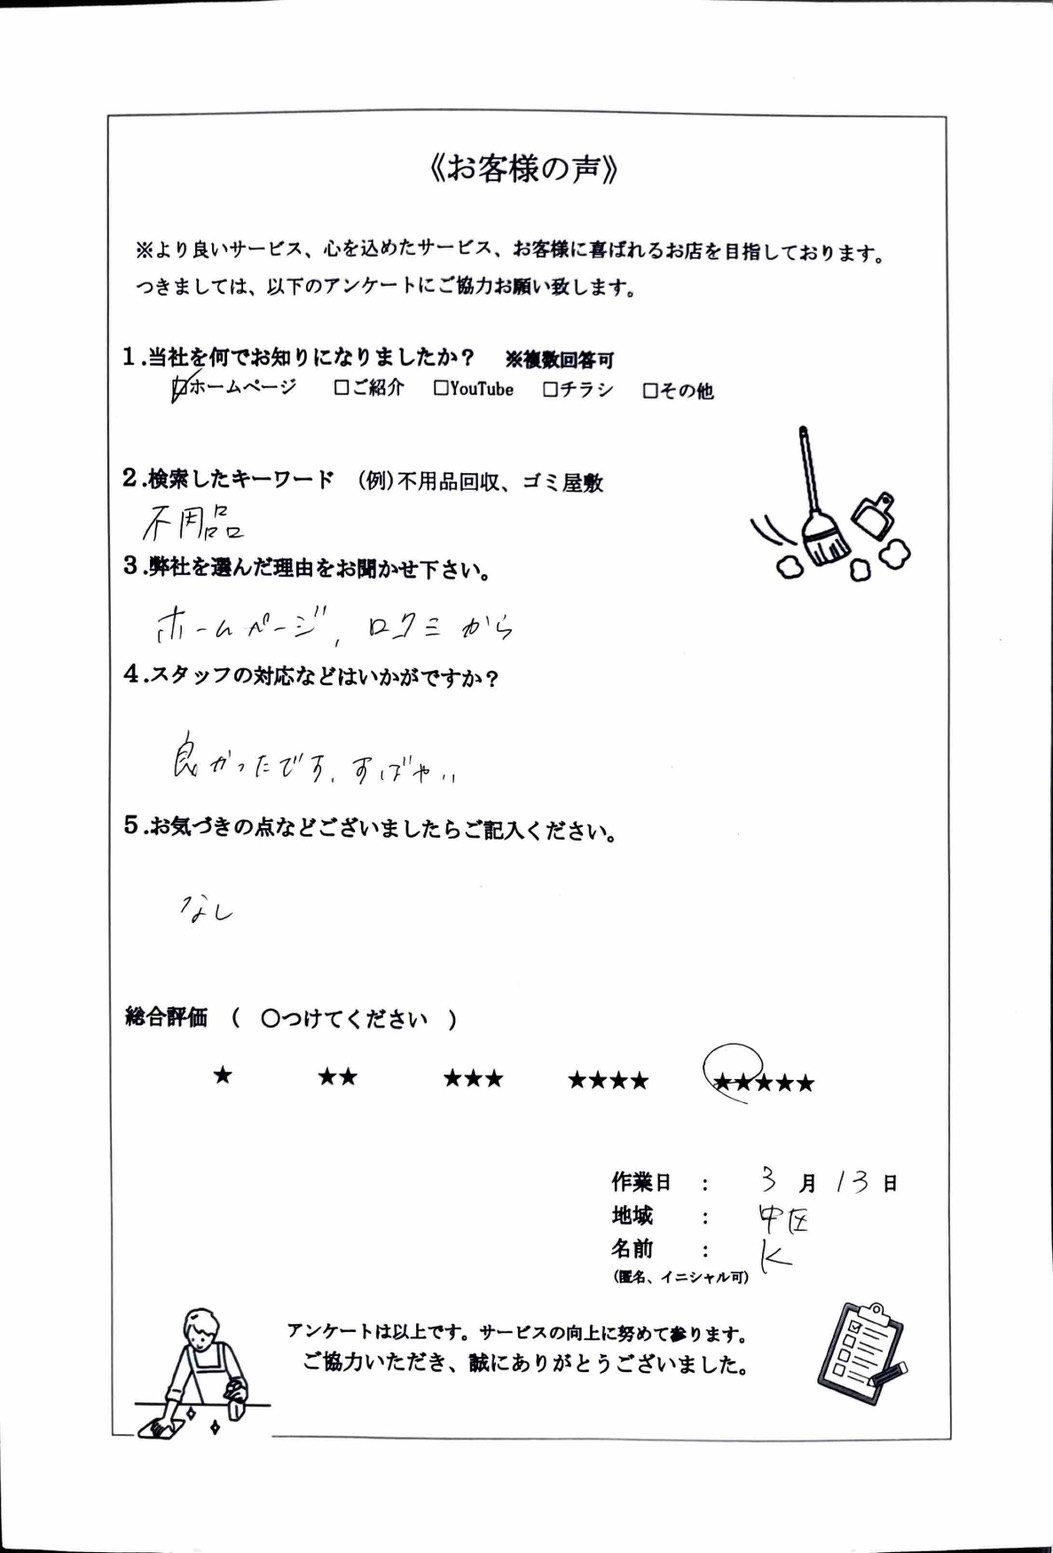 《お客様の声》
※より良いサービス、心を込めたサービス、お客様に喜ばれるお店を目指しております。
つきましては、以下のアンケートにご協力お願い致します。
1.当社を何でお知りになりましたか？ ※複数回答可
☑ホームページ □ご紹介 □YouTube □チラシ □その他
2.検索したキーワード (例)不用品回収、ゴミ屋敷
不用品
3.弊社を選んだ理由をお聞かせ下さい。
ホームページ、口クミから
4.スタッフの対応などはいかがですか？
良かったです、すばやい
5.お気づきの点などございましたらご記入ください。
なし
総合評価 ( 〇つけてください )
★ ★★ ★★★ ★★★★ ★★★★★
作業日 : 3月13日
地域 : 中区
名前 : K
(匿名、イニシャル可)
アンケートは以上です。サービスの向上に努めて参ります。
ご協力いただき、誠にありがとうございました。